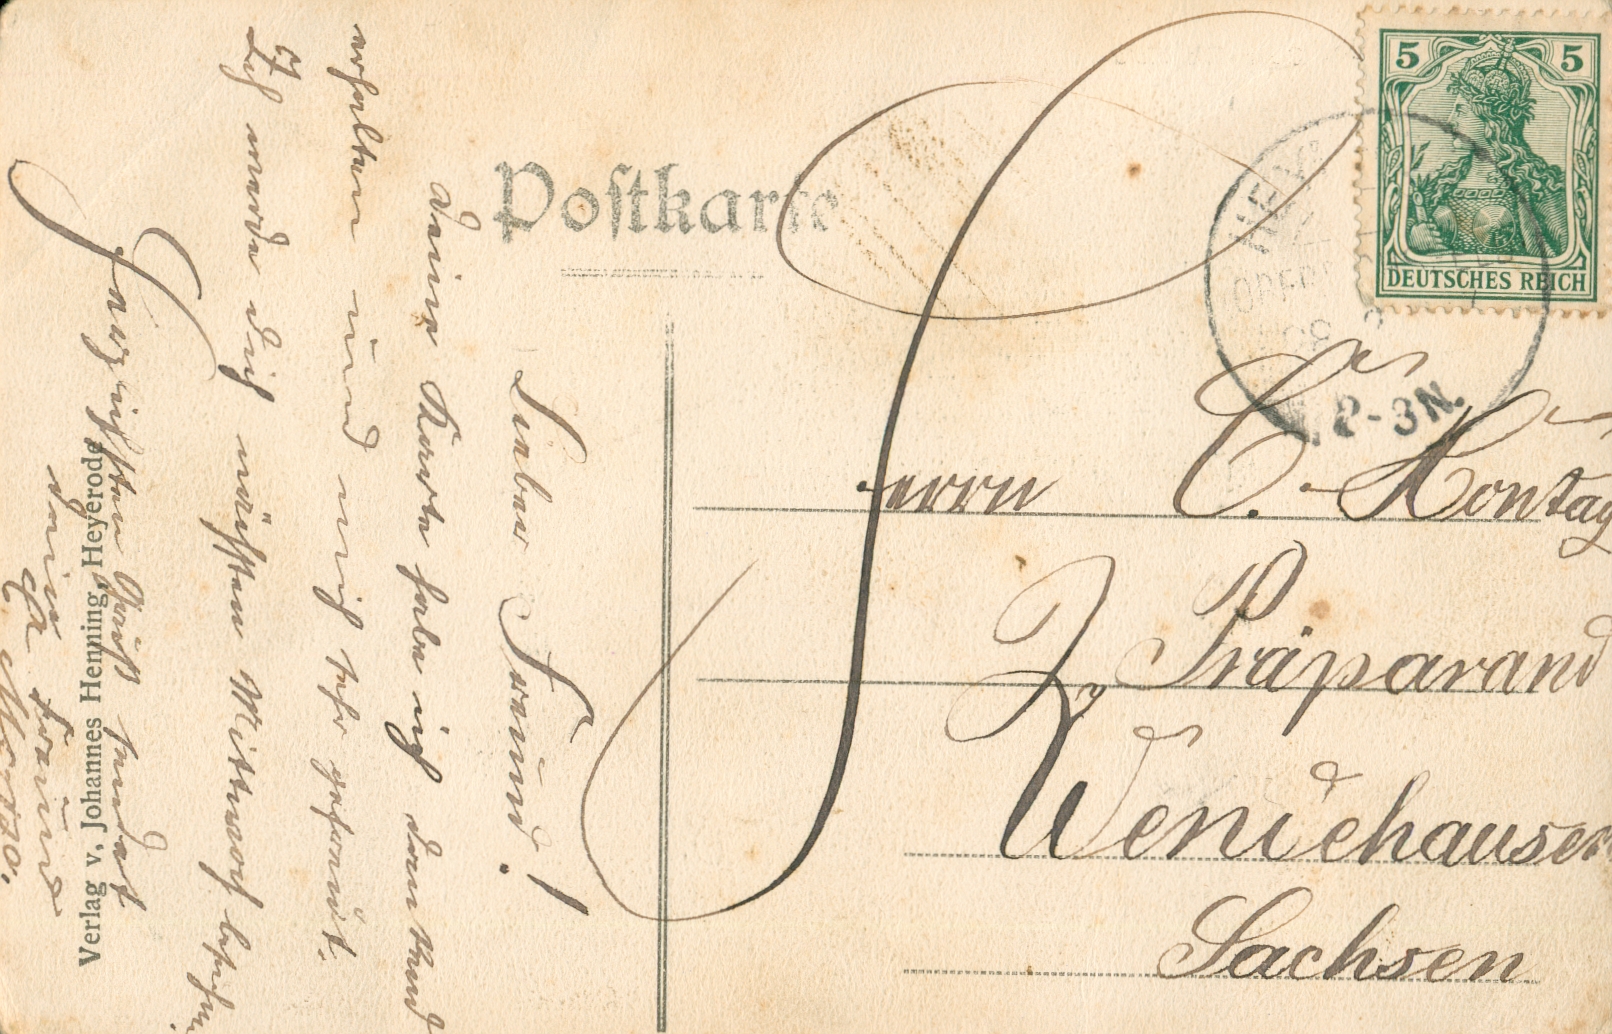 Postkarte
5 5
DEUTSCHES REICH
2-3N.
Herrn C. Montag
Präparand
Wendehausen
Sachsen
Lieber Freund!
Deine Karte habe ich dankend
erhalten und mich sehr gefreut.
Ich werde dich nächsten Mittwoch besuchen
Herzlichsten Gruß sendet
dein Freund
Montag.
Verlag v. Johannes Henning, Heyerode